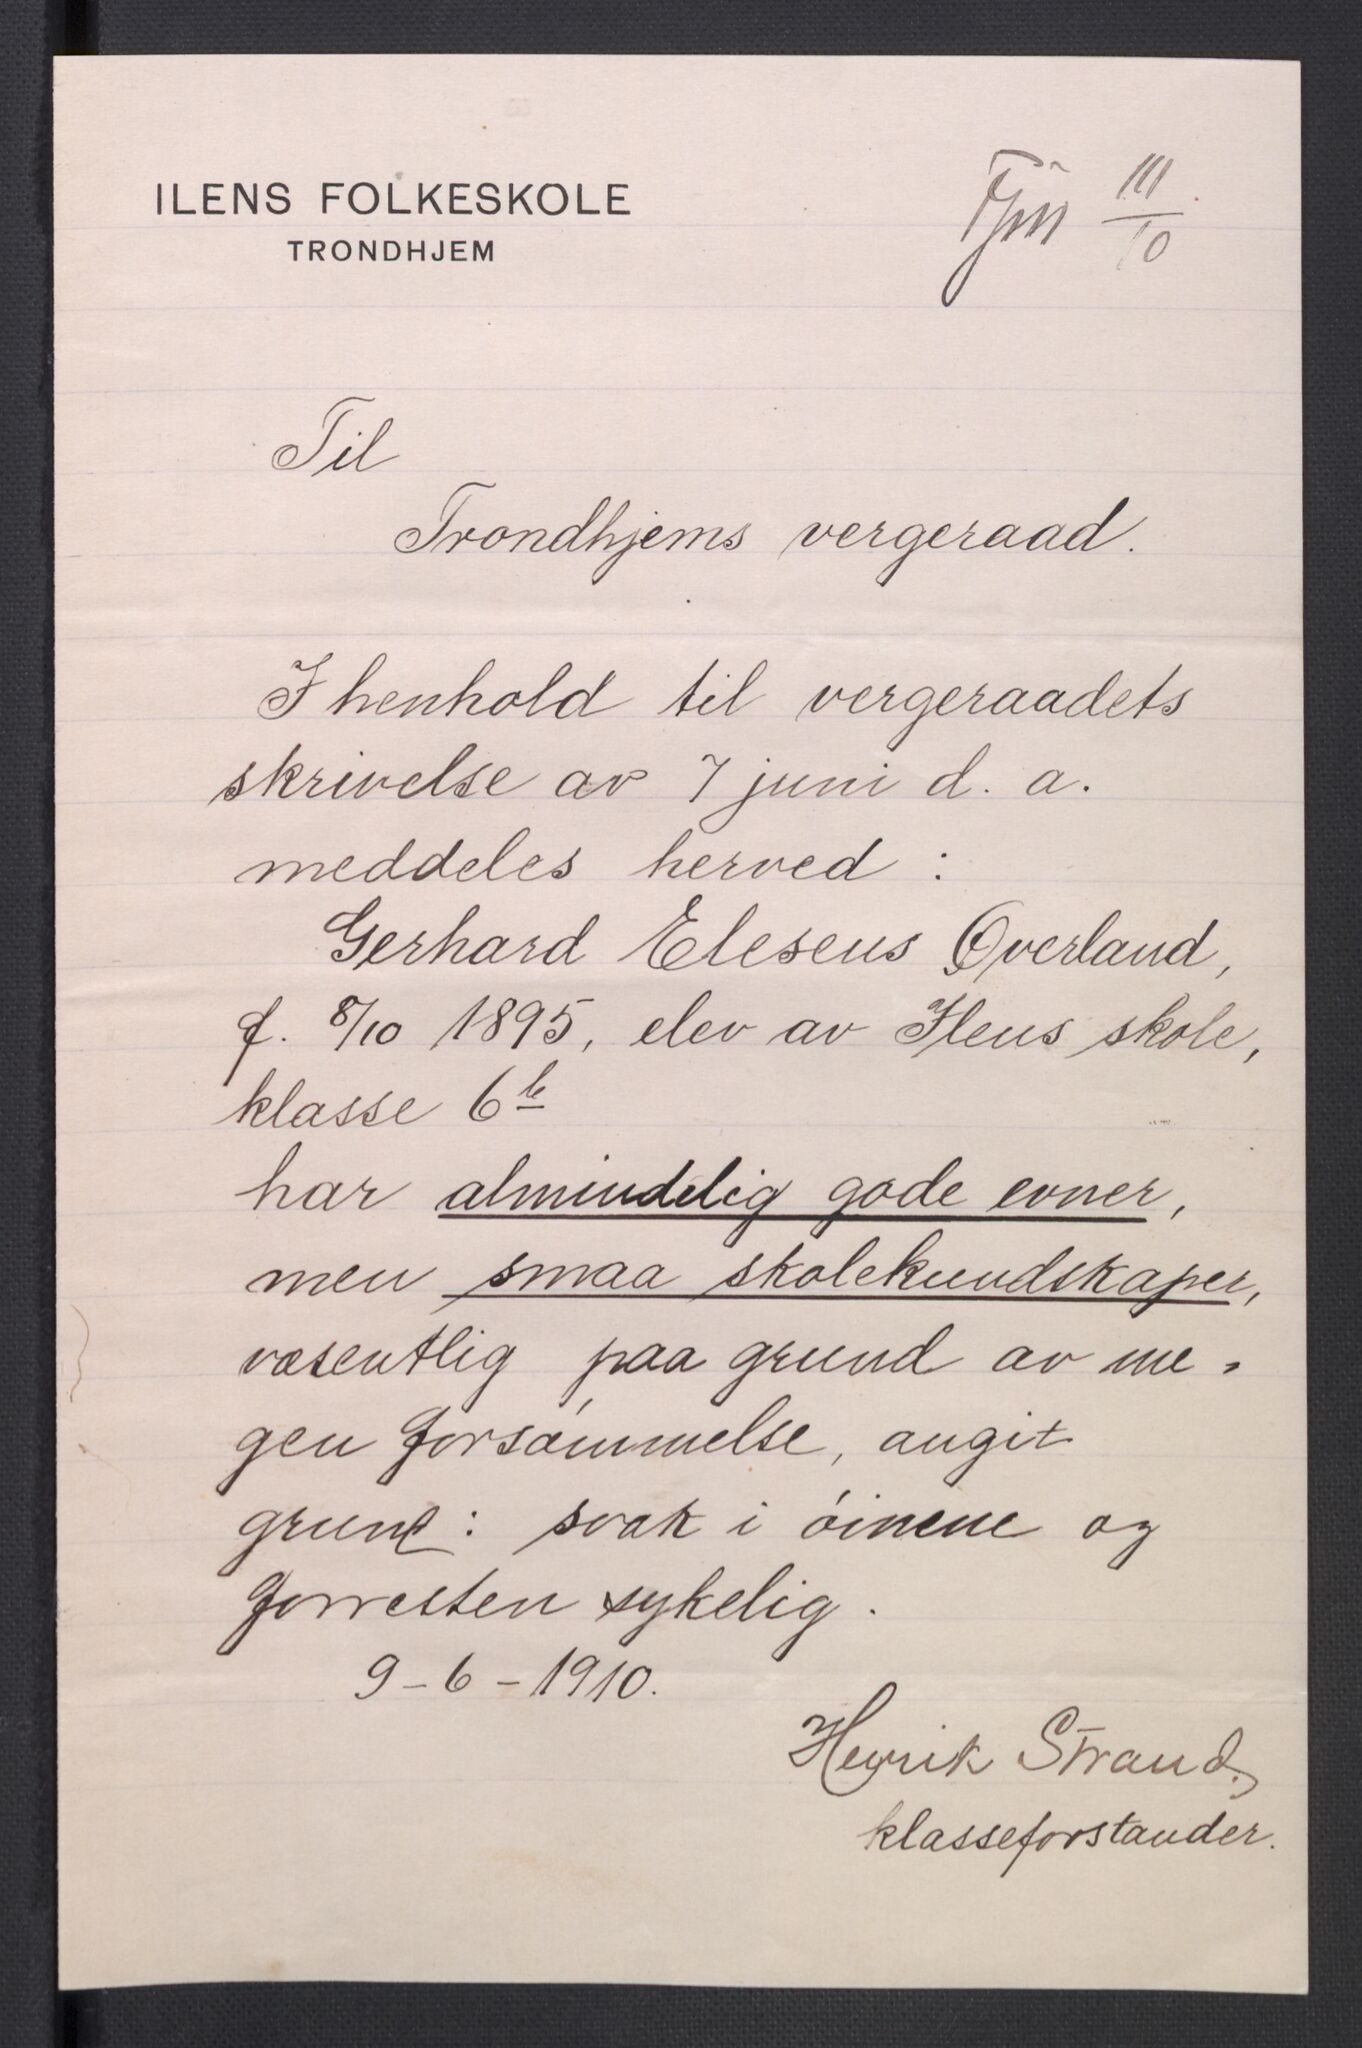 ILENS FOLKESKOLE
TRONDHJEM
111
10
Til
Trondhjems vergeraad.
I henhold til vergeraadets
skrivelse av 7 juni d. a.
meddeles herved :
Gerhard Eleseus Øverland,
f. 8/10 1895, elev av Ilens skole,
klasse 6b
har almindelig gode evner,
men smaa skolekundskaper,
væsentlig paa grund av me-
gen forsømmelse, angit
grund: svak i øinene og
forresten sykelig.
9-6-1910.
Henrik Strand.
klasseforstander.